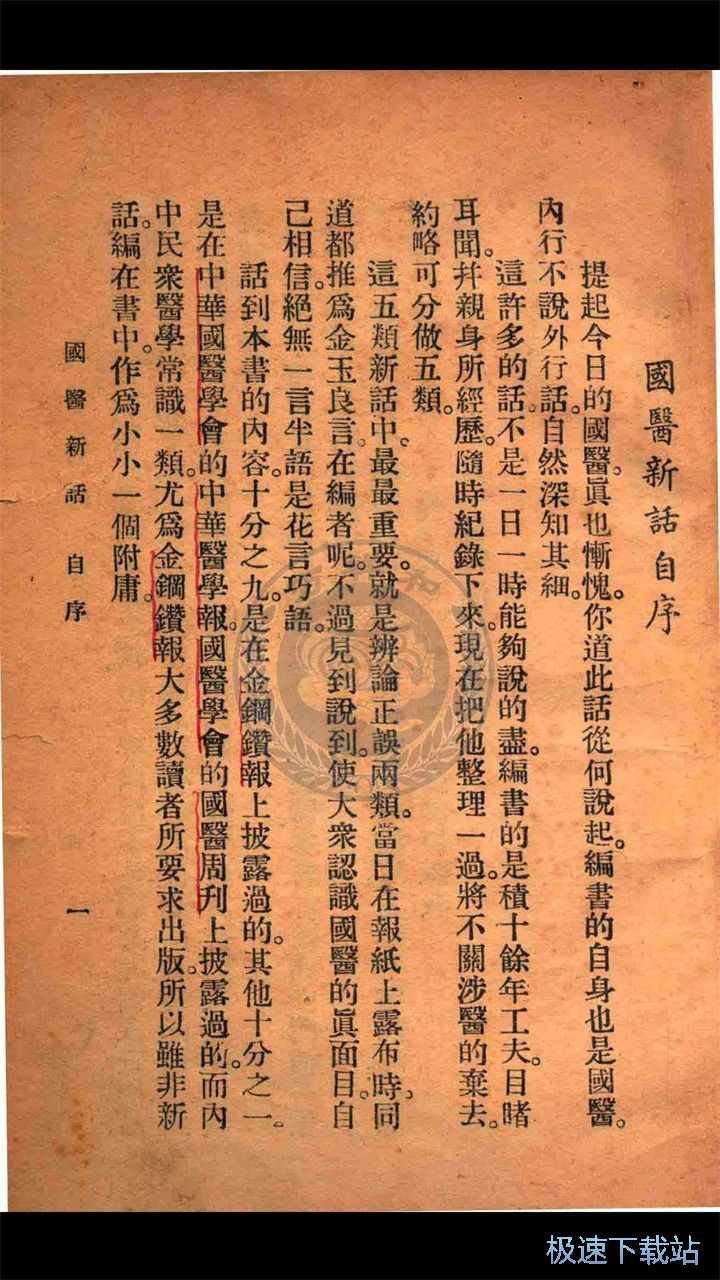 國醫新話自序
提起今日的國醫。眞也慚愧。你道此話從何說起。編書的自身也是國醫。
內行不說外行話。自然深知其細。
這許多的話。不是一日一時能夠說的盡。編書的是積十餘年工夫。目睹
耳聞。幷親身所經歷。隨時紀錄下來。現在把他整理一過。將不關涉醫的棄去。
約略可分做五類。
這五類新話中。最最重要。就是辨論正誤兩類。當日在報紙上露布時。同
道都推爲金玉良言。在編者呢。不過見到說到。使大衆認識國醫的眞面目。自
己相信。絕無一言半語是花言巧語。
話到本書的內容。十分之九。是在金鋼鑽報上披露過的。其他十分之一。
是在中華國醫學會的中華醫學報。國醫學會的國醫周刊上披露過的。而內
中民衆醫學常識一類。尤爲金鋼鑽報大多數讀者所要求出版。所以雖非新
話。編在書中。作爲小小一個附庸。
國醫新話 自序
一
极速下载站